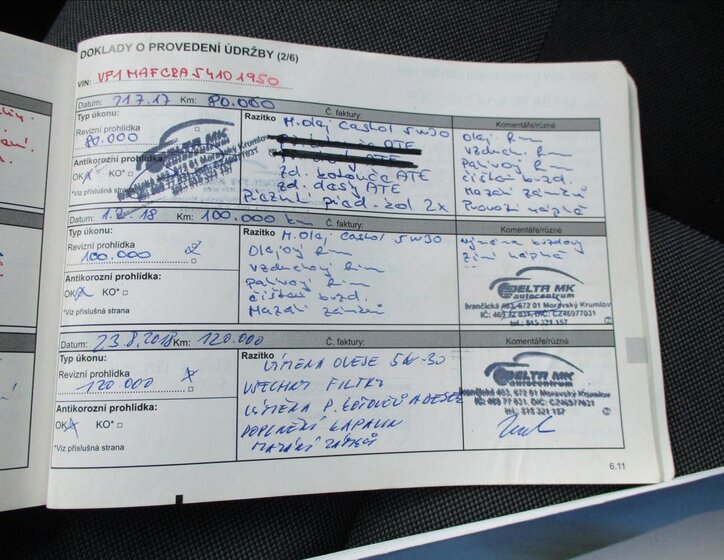 DOKLADY O PROVEDENÍ ÚDRŽBY (2/6)
VIN: VF1MAFCRA54101950
Datum: 21.7.17 Km: 80.000 Č. faktury:
Typ úkonu: Razítko Komentáře/různé
Revizní prohlídka
80.000
M.olej Castrol 5W30
ATE
ATE
zd. kotouče ATE
zd. desky ATE
před. kol 2x
Olej
Vzduch.
Palivový
čištění brzd.
Mazání zámků
Provozní náplně
Antikorozní prohlídka:
OK KO*
*Viz příslušná strana
DELTA MK
672 01 Moravský Krumlov
Datum: 1.2.18 Km: 100.000 km Č. faktury:
Typ úkonu: Razítko Komentáře/různé
Revizní prohlídka
100.000
M.Olej Castrol 5W30
Olejový
Vzduchový
Palivový
čištění brzd.
Mazání zámků
výměna brzdový
Antikorozní prohlídka:
OK KO*
*Viz příslušná strana
DELTA MK
autocentrum
Ivančická 463, 672 01 Moravský Krumlov
IČ: 469 77 031, DIČ: CZ46977031
tel.: 515 321 157
Datum: 23.8.2018 Km: 120.000 Č. faktury:
Typ úkonu: Razítko Komentáře/různé
Revizní prohlídka
120 000
VÝMĚNA OLEJE 5W-30
VŠECHNY FILTRY
VÝMĚNA P. KOTOUČŮ A DESEK
DOPLNĚNÍ KAPALIN
MAZÁNÍ ZÁMKŮ
Antikorozní prohlídka:
OK KO*
*Viz příslušná strana
DELTA MK
autocentrum
Ivančická 463, 672 01 Moravský Krumlov
IČ: 469 77 031, DIČ: CZ46977031
tel.: 515 321 157
6.11